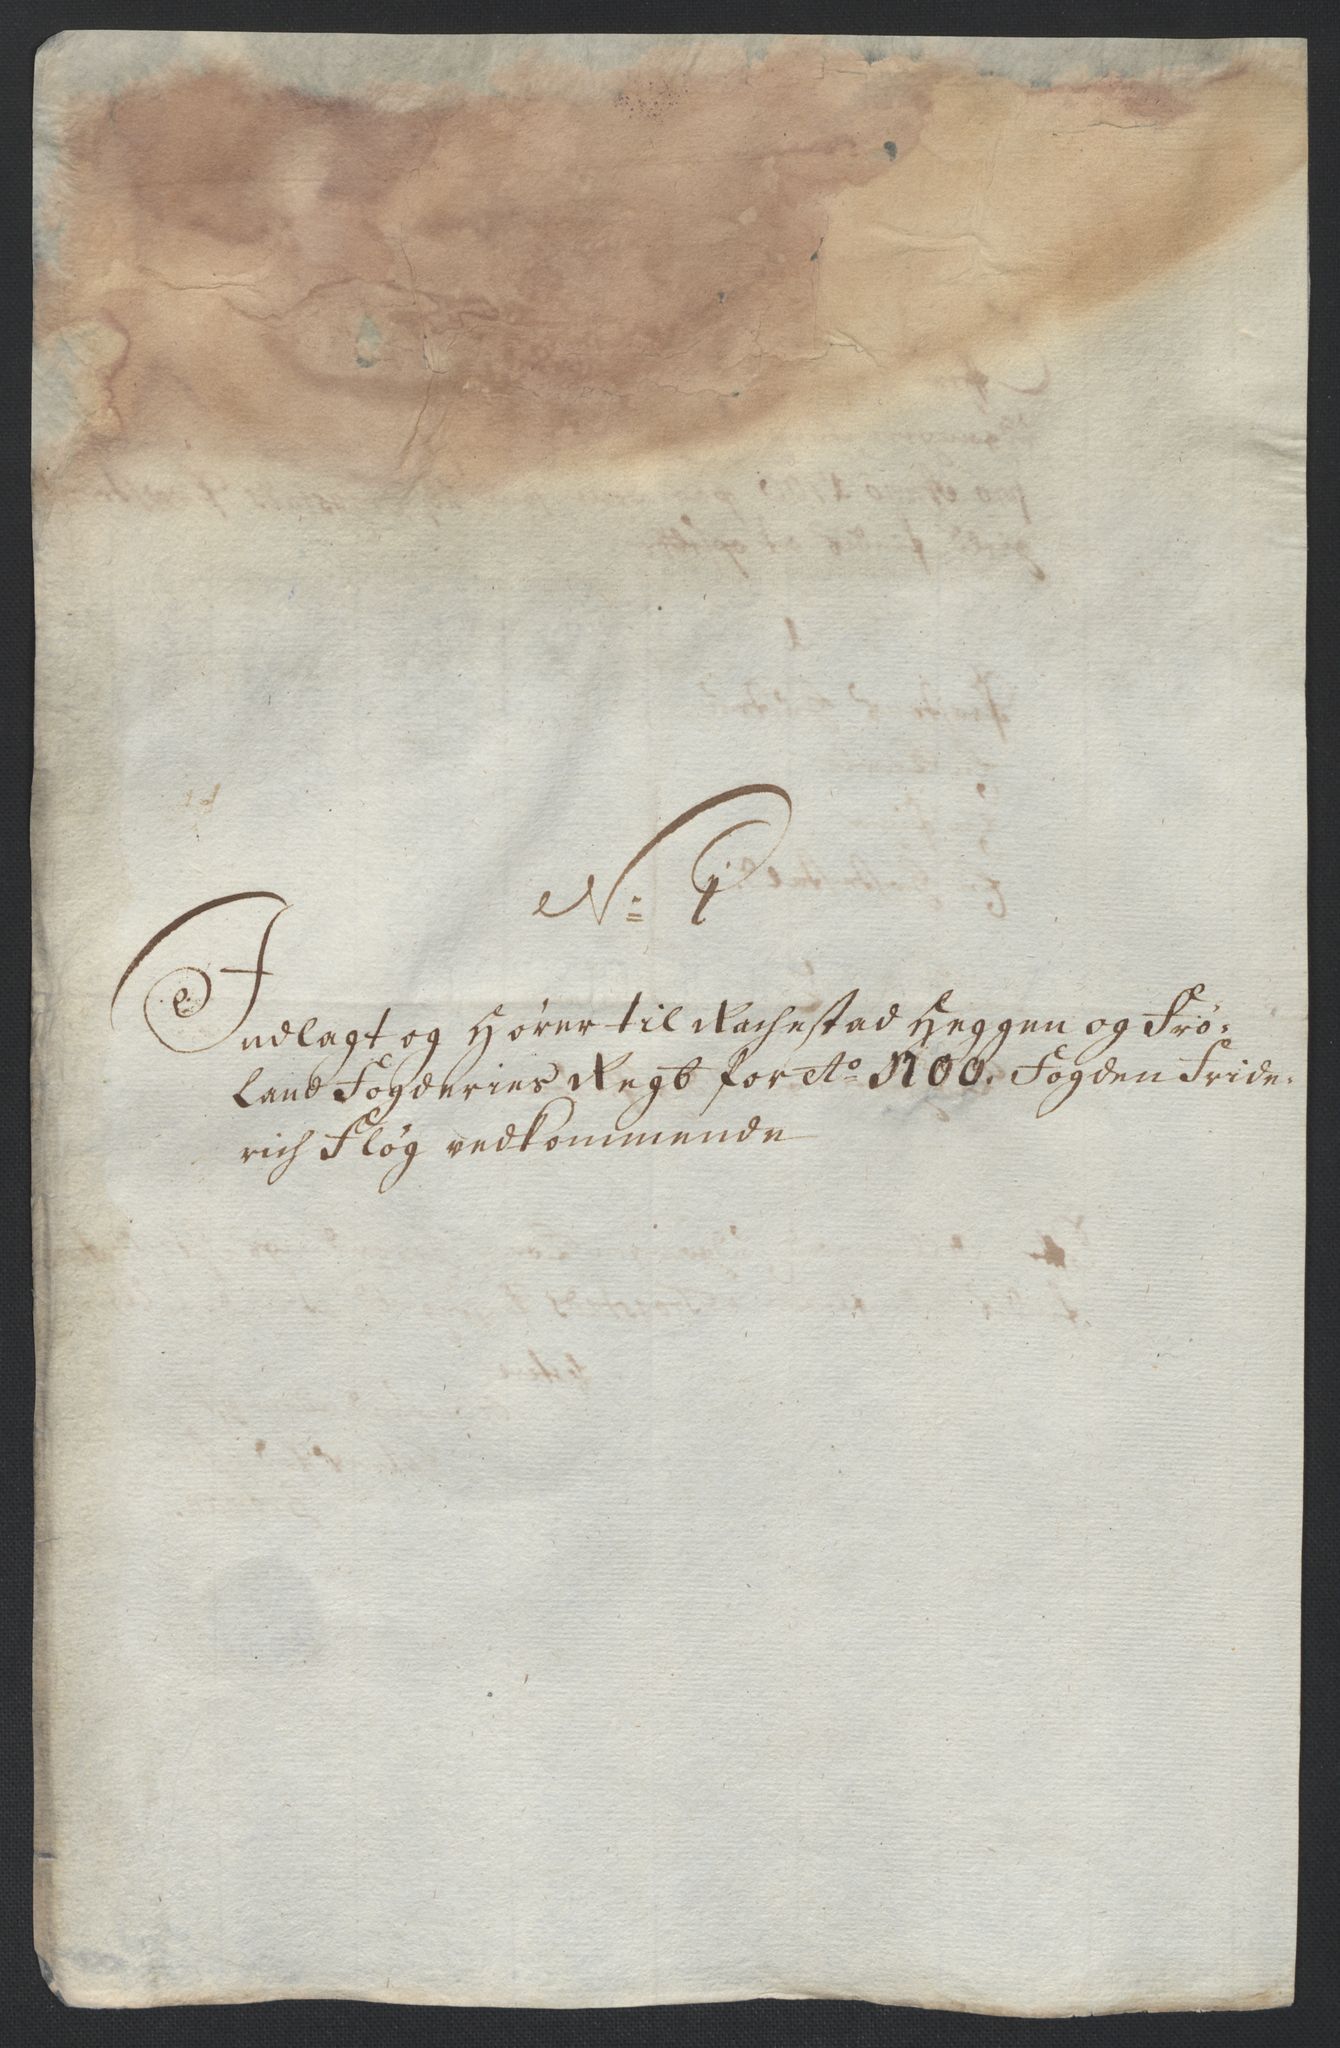 No: 1
Indlagt og Hører til Rachestad Heggen og Frö-
land Fogderies Regb for Ao 1700. Fogden Fride-
rich Flög vedkommende